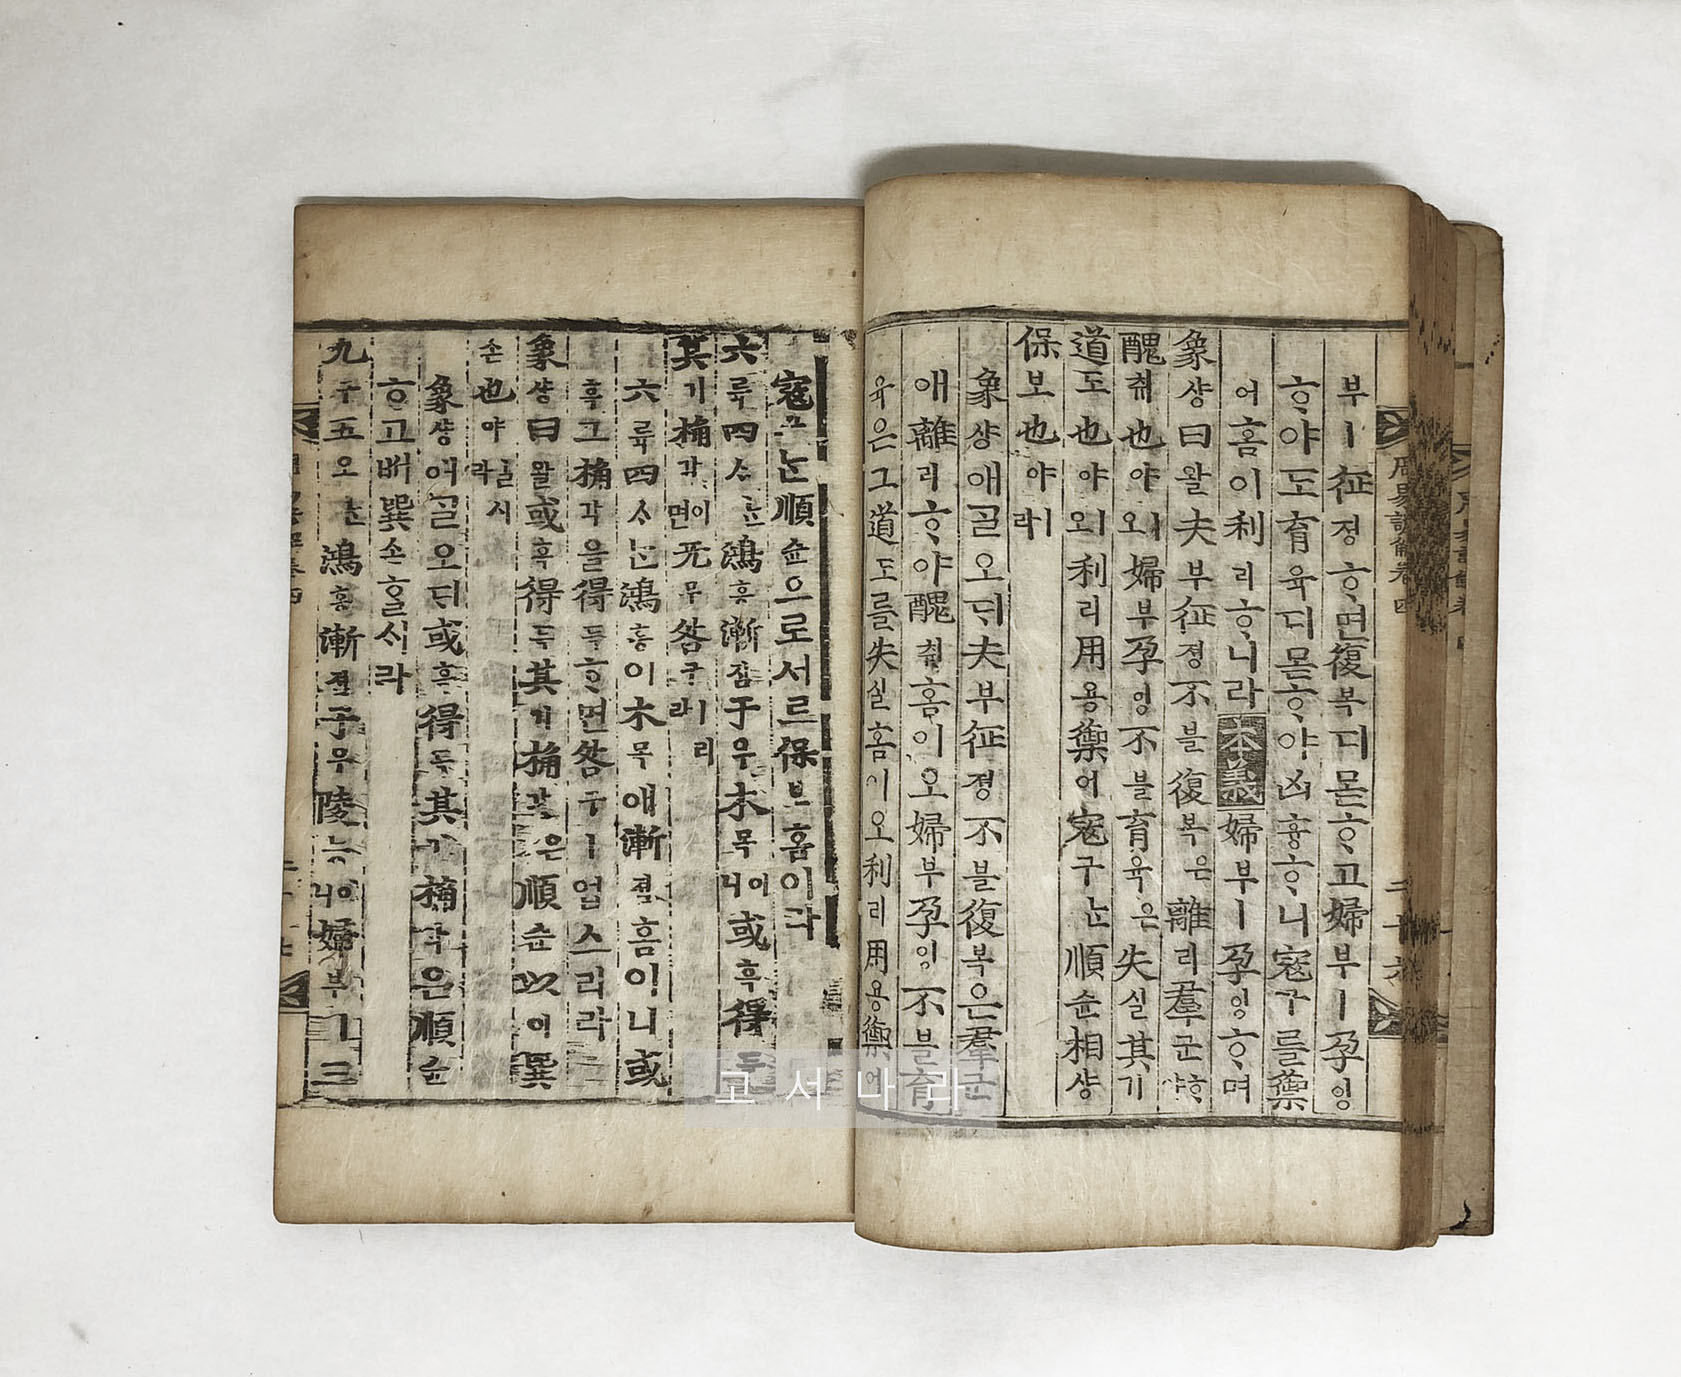 周易諺解卷四
부ㅣ征졍ᄒᆞ면復복디몯ᄒᆞ고婦부ㅣ孕잉
ᄒᆞ야도育육디몯ᄒᆞ야凶흉ᄒᆞ니寇구를禦
어홈이利리ᄒᆞ니라本義婦부ㅣ孕잉ᄒᆞ며
象샹曰왈夫부征졍不블復복은離리羣군ᄒᆞ야
醜취也야ㅣ오婦부孕잉不블育육은失실其기
道도也야ㅣ오利리用용禦어寇구ᄂᆞᆫ順슌相샹
保보也야ㅣ라
象샹애ᄀᆞᆯ오ᄃᆡ夫부征졍不블復복은羣군
애離리ᄒᆞ야醜취홈이오婦부孕잉不블育
육은그道도를失실홈이오利리用용禦어
寇구ᄂᆞᆫ順슌으로서르保보홈이라
六륙四ᄉᆞᄂᆞᆫ鴻홍漸졈于우木목이니或혹得득
其기桷각이면无무咎구ㅣ리라
六륙四ᄉᆞᄂᆞᆫ鴻홍이木목애漸졈홈이니或
혹그桷각을得득ᄒᆞ면咎구ㅣ업스리라
象샹曰왈或혹得득其기桷각은順슌以이巽
손也야일ᄉᆡ라
象샹애ᄀᆞᆯ오ᄃᆡ或혹得득其기桷각은順슌
ᄒᆞ고ᄡᅥ巽손ᄒᆞᆯᄉᆡ라
九구五오ᄂᆞᆫ鴻홍漸졈于우陵능이니婦부ㅣ三
고서나라